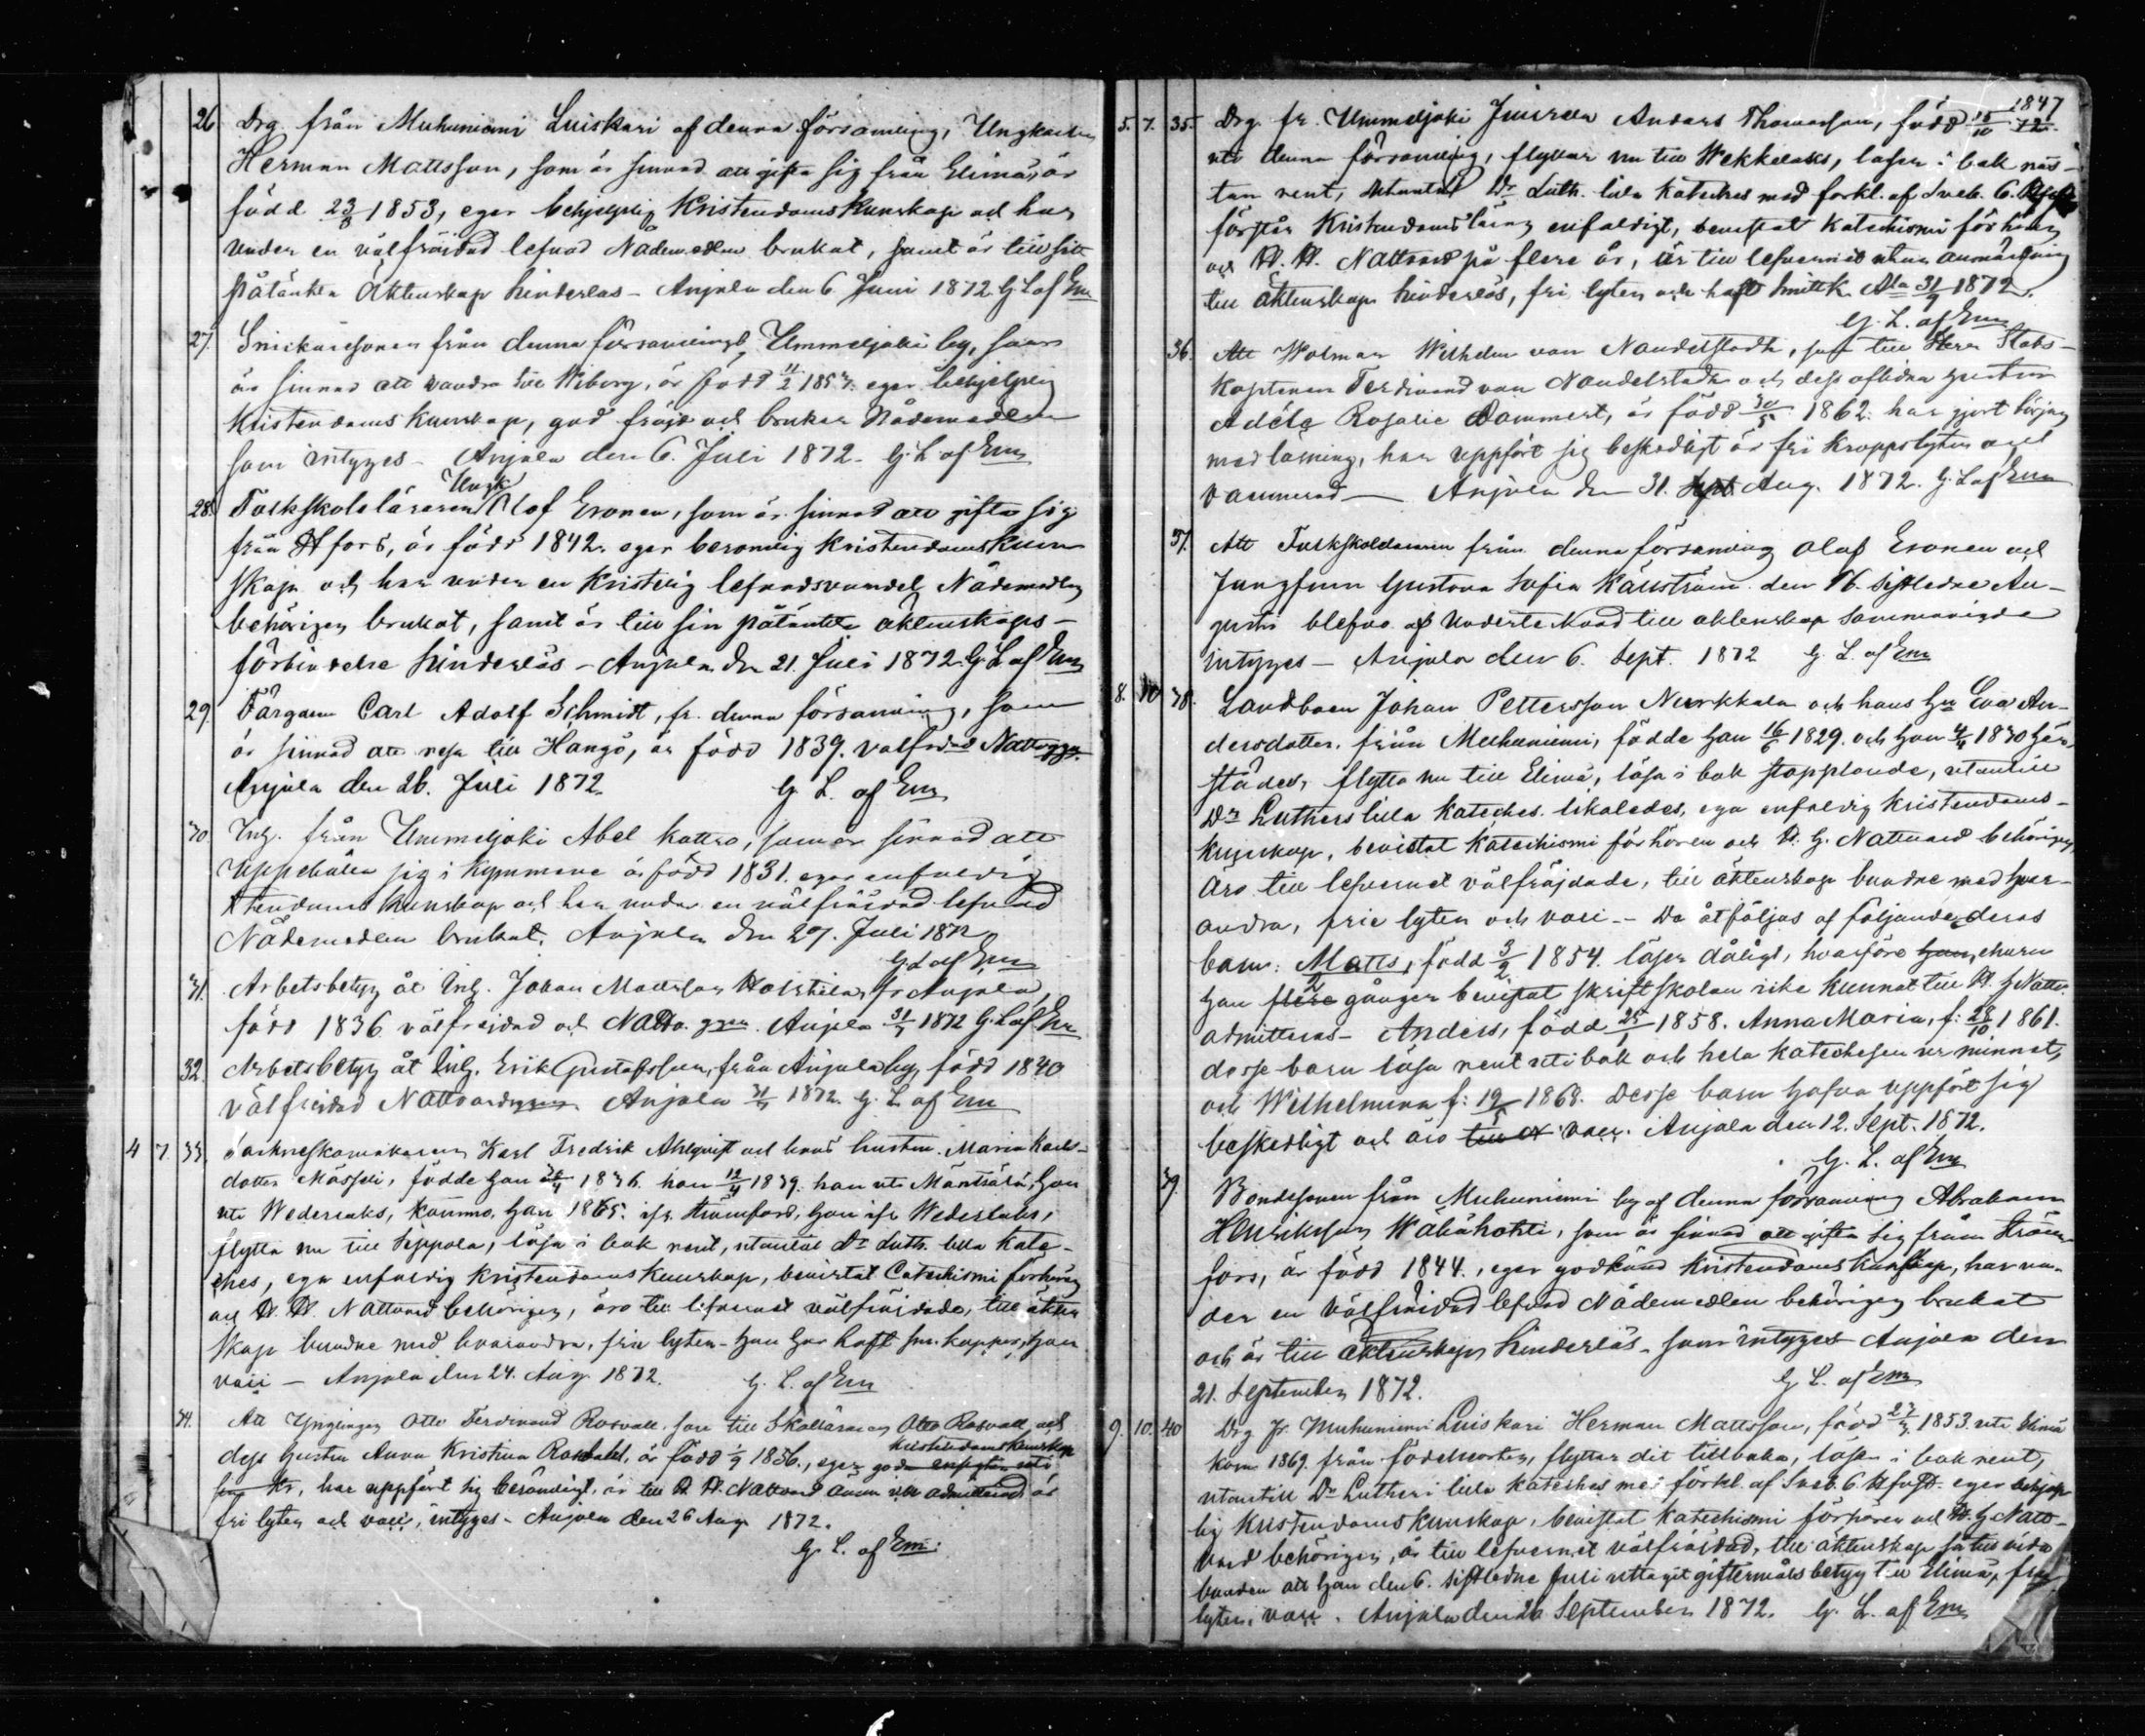 26 Drg. från Muhuniemi Luiskari af denna församling, Ungkarlen
Herman Mattsson, som är sinnad att gifta sig från Elimä, är
född 23/3 1853, eger behjelplig Kristendoms kunskap och har
under en välfräjdad lefnad Nådemedlen brukat, samt är till sitt
påtänkta Äktenskap hinderlös – Anjala den 6 Juni 1872 G. L. af Em
27. Snickaresonen från denna församlings Ummeljoki by, som
är sinnad att vandra till Wiborg, är född 11/2 1857. eger behjelplig
Kristendoms kunskap, god fräjd och brukar Nådemedlen
som intyges – Anjala den 6. Juli 1872. G. L. af Em
Ungk
28. Folkskoleläraren Olof Eronen, som är sinnad att gifta sig
från H:fors, är född 1842. eger berömlig Kristendomskun
skap och har under en Kristelig lefnadsvandel Nådemedlen
behörigen brukat, samt är till sin påtänkta äktenskaps-
förbindelse hinderlös – Anjala den 21. Juli 1872. G. L. af Em
29. Färgaren Carl Adolf Schmidt, fr. denna församling, som
är sinnad att resa till Hangö, är född 1839. välfrejdad Nattvggn.
Anjala den 26. Juli 1872. G. L. af Em
30. Inh. från Ummeljoki Abel Kattro, som är sinnad att
uppehålla sig i Kymmene är född 1831. eger enfaldig
Xtendoms kunskap och har under en välfräjdad lefnad
Nådemedlen brukat. Anjala den 27. Juli 1872
G. L. af Em
31. Arbetsbetyg åt Inh. Johan Mattsson fr. Anjala,
född 1836. välfrejdad och Nattv. ggn. Anjala 31/7 1872 G. L. af Em
32. Arbetsbetyg åt Inh. Erik Gustafsson, från Anjala by, född 1840
välfrejdad Nattvardsggn Anjala 31/7 1872. G. L. af Em
4 7. 33. Karl Fredrik Ahlqvist och hans hustru Maria Karls-
dotter Mässeli, födde han 1836. hon 12/4 1839. han uti Mäntsälä, hon
uti Wederlaks, kommo, han 1865. ifr. Strömfors, hon ifr Wederlaks,
flytta nu till Sippola, läsa i bok rent, utantill Dr Luth. lilla Kate-
ches, ega enfaldig Kristendoms kunskap, bevistat Catechismi förhören
och H. H. Nattvard behörigen, äro till lefvernet välfräjdade, till äkten
skap bundne med hvarandra, fria lyten – han har haft sm. koppor, hon
vacc – Anjala den 24. Aug. 1872. G. L. af Em
34. Att Ynglingen Otto Ferdinand Rosvall, son till Skolläraren Otto Rosvall och
dess hustru Anna Kristina Rosvall, är född 1/9 1856., eger goda Kristendomskunskap
har uppfört sig berömligt, är till H. H. Nattvard ännu icke admitterad, är
fri lyten och vacc, intyges – Anjala den 26 Aug. 1872.
G. L. af Em.
5. 7. 35. Drg. fr. Ummeljoki Anders Thomasson, född 15/10 1847
uti denna församling, flyttar nu till Wekkelaks, läser i bok näs-
tan rent, utantill Dr Luth. lilla Katekes med förkl. af Sveb.
förstår Kristendoms läran enfaldigt, bevistat Katechismi förhören
och H. H. Nattvard på flere år, är till lefvernet utan anmärkning
till äktenskap hinderlös, fri lyten och haft smittk. Ala 31/7 1872.
G. L. af Em
36. Att Wolmar Wilhelm von Nandelstadh, son till Herr Stabs-
kaptenen Ferdinand von Nandelstadh och dess aflidna hustru
Adéle Rosalie Dammert, är född 30/5 1862. har gjort början
med läsning, har uppfört sig beskedligt är fri kroppslyten och
vaccinerad – Anjala den 31. Aug. 1872. G. L. af Em
37. Att Folkskoleläraren från denna församling Olof Eronen och
Jungfrun Gustava Sofia Källström den 16. sistledne Au-
gusti blefvo af undertecknad till äktenskap sammanvigda
intyges – Anjala den 6. Sept. 1872 G. L. af Em
8. 10 38. Landboen Johan Pettersson Nurkkala och hans hu Eva An-
dersdotter, från Muhuniemi, födde han 16/6 1829. och hon 4/4 1830 här
städes, flytta nu till Elimä, läsa i bok stapplande, utantill
Dr Luthers lilla Kateches. likaledes, ega enfaldig Kristendoms-
kunskap, bevistat Katechismi förhören och H. H. Nattvard behörigen,
äro till lefvernet välfräjdade, till äktenskap bundne med hvar-
andra, frie lyten och vacc. – De åtföljas af följande deras
barn: Matts, född 3/2 1854. läser dåligt, hvarföre ehuru
han 2 gånger bevistat skriftskolan icke kunnat till H. H. Nattv.
admitteras – Anders, född 25/1 1858. Anna Maria, f: 28/10 1861.
desse barn läsa rent uti bok och hela katechesen ur minnet,
och Wilhelmina f: 19/5 1868. Desse barn hafva uppfört sig
beskedligt och äro vacc. Anjala den 12. Sept. 1872.
G. L. af Em
39. Bondesonen från Muhuniemi by af denna församling Abraham
Henriksson Wähähohti, som är sinnad att gifta sig från Ström-
fors, är född 1844., eger godkänd Kristendoms kunskap, har un-
der en välfräjdad lefnad Nådemedlen behörigen brukat
och är till äktenskap hinderlös, som intyges Anjala den
21. September 1872. G. L. af Em
9. 10. 40 Drg fr. Muhuniemi Luiskari Herman Mattsson, född 23/3 1853. uti Elimä
kom 1869. från födelseorten, flyttar dit tillbaka, läser i bok rent,
utantill Dr Lutheri lilla Kateches med förkl. af Sveb. eger behjelp-
lig Kristendoms kunskap, bevistat Katechismi förhören och H. H. Natt-
vard behörigen, är till lefvernet välfräjdad, till äktenskap så till vida
bunden att han den 6. sistledne Juli uttagit giftermåls betyg till Elimä, fri
lyten, vacc. Anjala den 26 September 1872. G. L. af Em